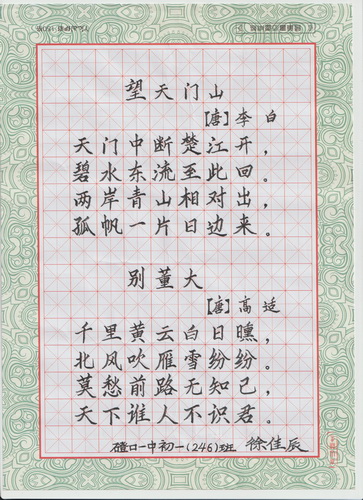 望天门山
【唐】李白
天门中断楚江开，
碧水东流至此回。
两岸青山相对出，
孤帆一片日边来。
别董大
【唐】高适
千里黄云白日曛，
北风吹雁雪纷纷。
莫愁前路无知己，
天下谁人不识君。
磴口一中初一(246)班 徐佳辰